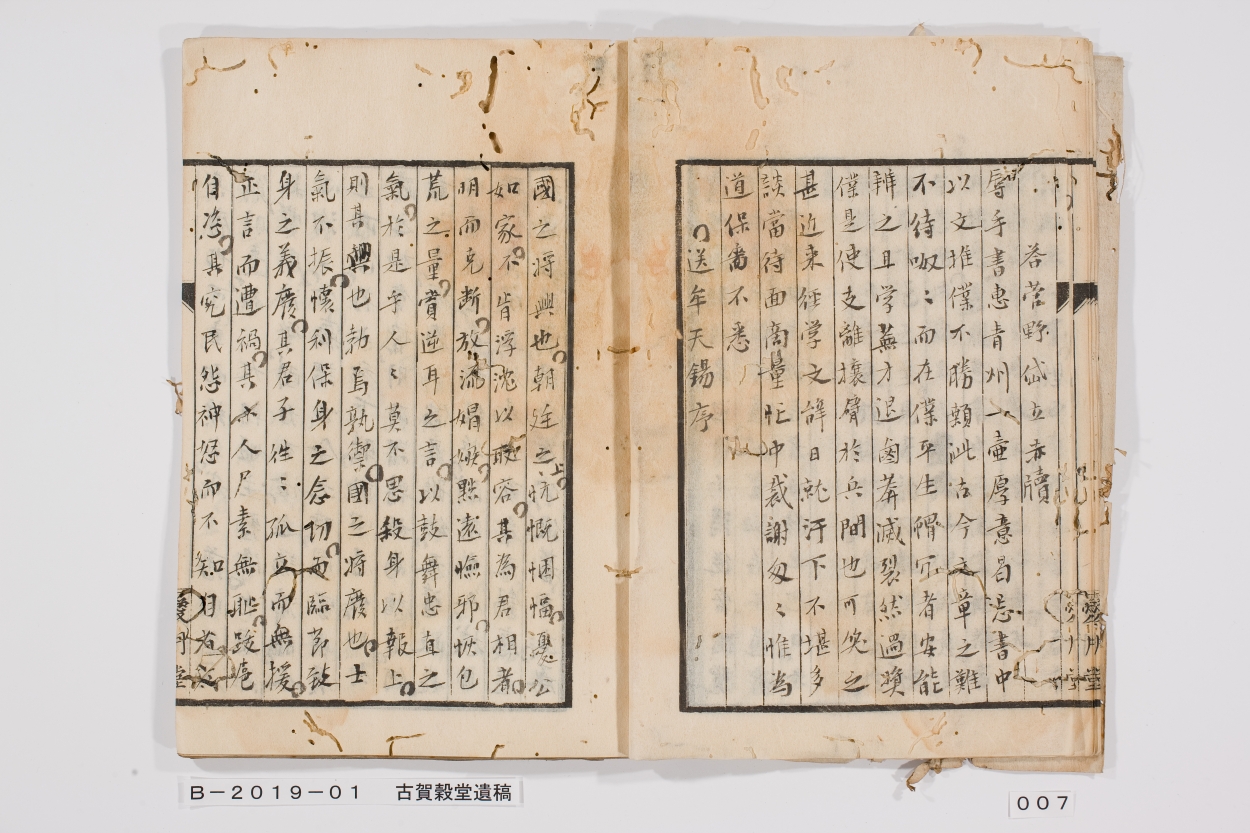 答菅野岱立赤牘
辱手書恵青州一壷厚意曷忘書中
以文推僕不勝顙泚古今文章之難
不待呶〻而在僕平生
辨之且学蕪才退鹵莽滅裂然過奨
僕是使支離攘臂於兵間也可笑之
甚近来経学文辞日就汙下不堪多
談当待面商量忙中裁謝匆〻惟為
道保嗇不悉
送牟天錫序
國之将興也朝廷之上忼慨悃愊憂公
如家不肯浮沈以取容其為君相者
明而克断放流娼嫉黜遠憸邪恢包
荒之量賞逆耳之言以鼓舞忠直之
氣於是乎人〻莫不思殺身以報上
則其興也勃焉孰禦國之将廢也士
氣不振懐利保身之念切而臨節致
身之義廢其君子往〻孤立而無援
正言而遭禍其小人尸素無恥跋扈
自恣其究民怨神怒而不知
B−2019−01 古賀穀堂遺稿
007